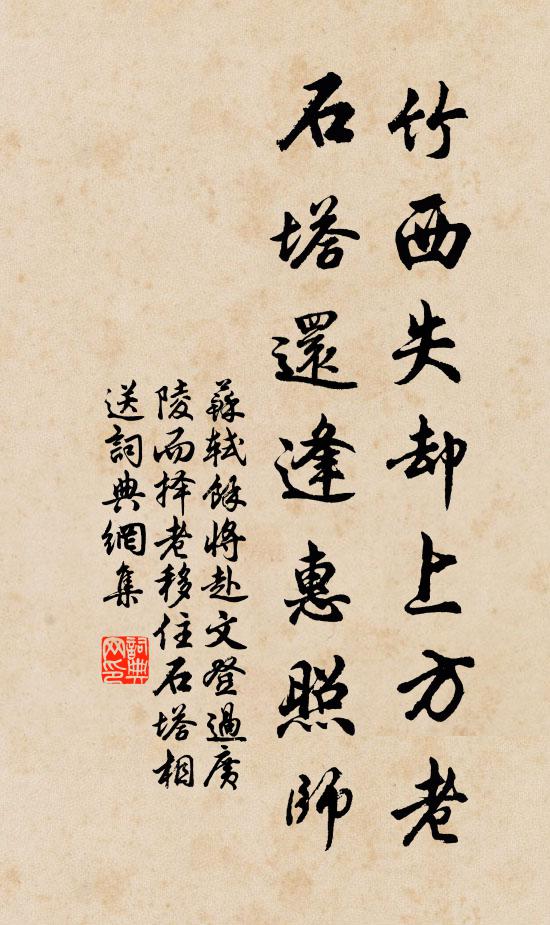 竹西失却上方老
石塔還逢惠照師
蘇軾餘將赴文登過廣
陵而择老移住石塔相
送詞典網集
詞典
网印